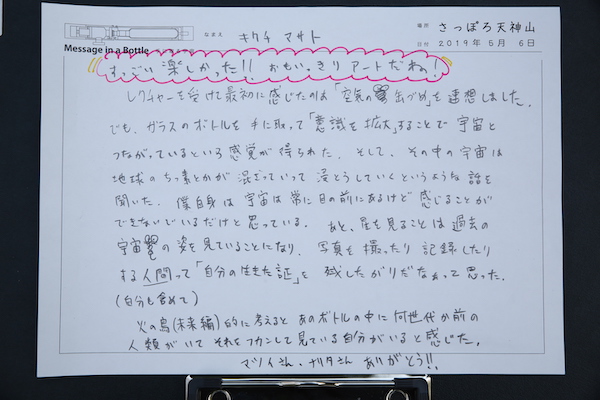 なまえ キクチ マサト
場所 さっぽろ天神山
Message in a Bottle
日付 2019年 5月 6日
すっごい楽しかった!! おもいっきりアートだね!
レクチャーを受けて最初に感じたのは「空気の缶づめ」を連想しました。
でも、ガラスのボトルを手に取って「意識を拡大」することで宇宙と
つながっているという感覚が得られた。そして、その中の宇宙は
地球のちっ素とかが混ざっていって浸とうしていくというような話を
聞いた。僕自身は宇宙は常に目の前にあるけど感じることが
できないでいるだけと思っている。あと、星を見ることは過去の
宇宙の姿を見ていることになり、写真を撮ったり記録したり
する人間って「自分の生きた証」を残したがりだなぁって思った。
(自分も含めて)
火の鳥(未来編)的に考えるとあのボトルの中に何世代か前の
人類がいてそれをフカンして見ている自分がいると感じた。
マツイさん、ナリタさん ありがとう!!